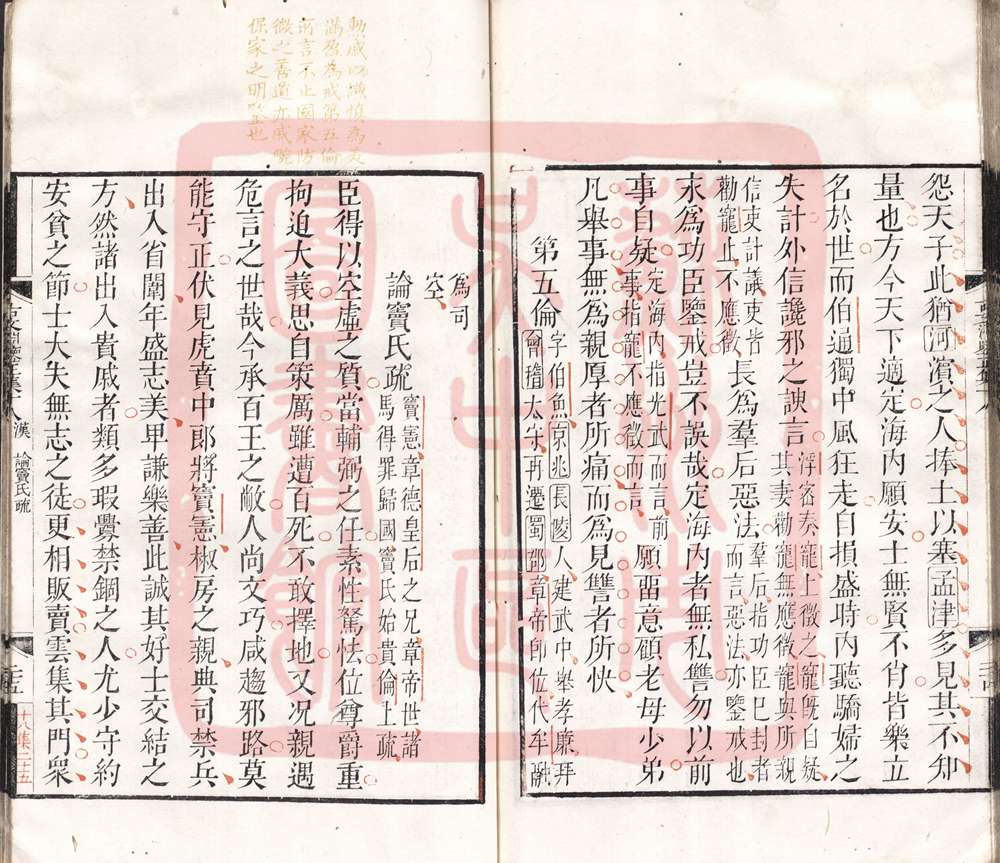 怨天子此猶河濱之人捧土以塞孟津多見其不知
量也方今天下適定海內願安士無賢不肖皆樂立
名於世而伯通獨中風狂走自損盛時內聽驕婦之
失計外信讒邪之諛言浮密奏寵上徵之寵既自疑其妻勸寵無應徵寵與所親
信吏計議吏皆勸寵止不應徵長為羣后惡法羣后指功臣已封者而言惡法亦鑒戒也
永為功臣鑒戒豈不誤哉定海內者無私讐勿以前
事自疑定海內指光武而言前事指寵不應徵而言願畱意顧老母少弟
凡舉事無為親厚者所痛而為見讐者所快
第五倫字伯魚京兆長陵人建武中舉孝廉拜會稽太守再遷蜀郡章帝即位代牟融
為司空
論竇氏疏竇憲章德皇后之兄章帝世諸馬得罪歸國竇氏始貴倫上疏
臣得以空虛之質當輔弼之任素性駑怯位尊爵重
拘迫大義思自策厲雖遭百死不敢擇地又況親遇
危言之世哉今承百王之敝人尚文巧咸趨邪路莫
能守正伏見虎賁中郎將竇憲椒房之親典司禁兵
出入省闥年盛志美卑謙樂善此誠其好士交結之
方然諸出入貴戚者類多瑕釁禁錮之人尤少守約
安貧之節士大夫無志之徒更相販賣雲集其門眾
漢 論竇氏疏
十八集二十五
滿盈為戒第五倫
所言不止國家防
微之善道亦戚畹
保家之明鑒也